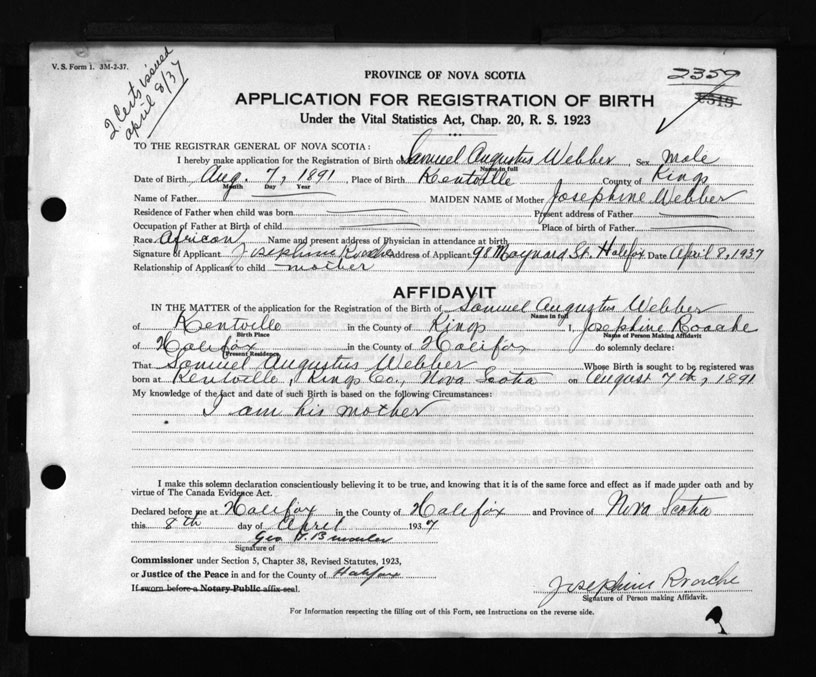 V. S. Form 1. 3M-2-37.
2 Certs issued
april 8/37
2359
PROVINCE OF NOVA SCOTIA
APPLICATION FOR REGISTRATION OF BIRTH
Under the Vital Statistics Act, Chap. 20, R. S. 1923
TO THE REGISTRAR GENERAL OF NOVA SCOTIA:
I hereby make application for the Registration of Birth of Samuel Augustus Webber Sex male
Name in full
Date of Birth Aug. 7, 1891 Place of Birth Kentville County of Kings
Month Day Year
Name of Father MAIDEN NAME of Mother Josephine Webber
Residence of Father when child was born Present address of Father
Occupation of Father at Birth of child Place of birth of Father
Race African Name and present address of Physician in attendance at birth
Signature of Applicant Josephine Roache Address of Applicant 98 Maynard St. Halifax Date April 8, 1937
Relationship of Applicant to child mother
AFFIDAVIT
IN THE MATTER of the application for the Registration of the Birth of Samuel Augustus Webber
Name in full
of Kentville in the County of Kings I, Josephine Roache
Birth Place Name of Person Making Affidavit
of Halifax in the County of Halifax do solemnly declare:
Present Residence
That Samuel Augustus Webber Whose Birth is sought to be registered was
born at Kentville, Kings Co., Nova Scotia on August 7th, 1891
My knowledge of the fact and date of such Birth is based on the following Circumstances:
I am his mother
I make this solemn declaration conscientiously believing it to be true, and knowing that it is of the same force and effect as if made under oath and by
virtue of The Canada Evidence Act.
Declared before me at Halifax in the County of Halifax and Province of Nova Scotia
this 8th day of April 1937
Geo
Signature of
Commissioner under Section 5, Chapter 38, Revised Statutes, 1923,
or Justice of the Peace in and for the County of Halifax
If sworn before a Notary Public affix seal.
Josephine Roache
Signature of Person making Affidavit.
For Information respecting the filling out of this Form, see Instructions on the reverse side.